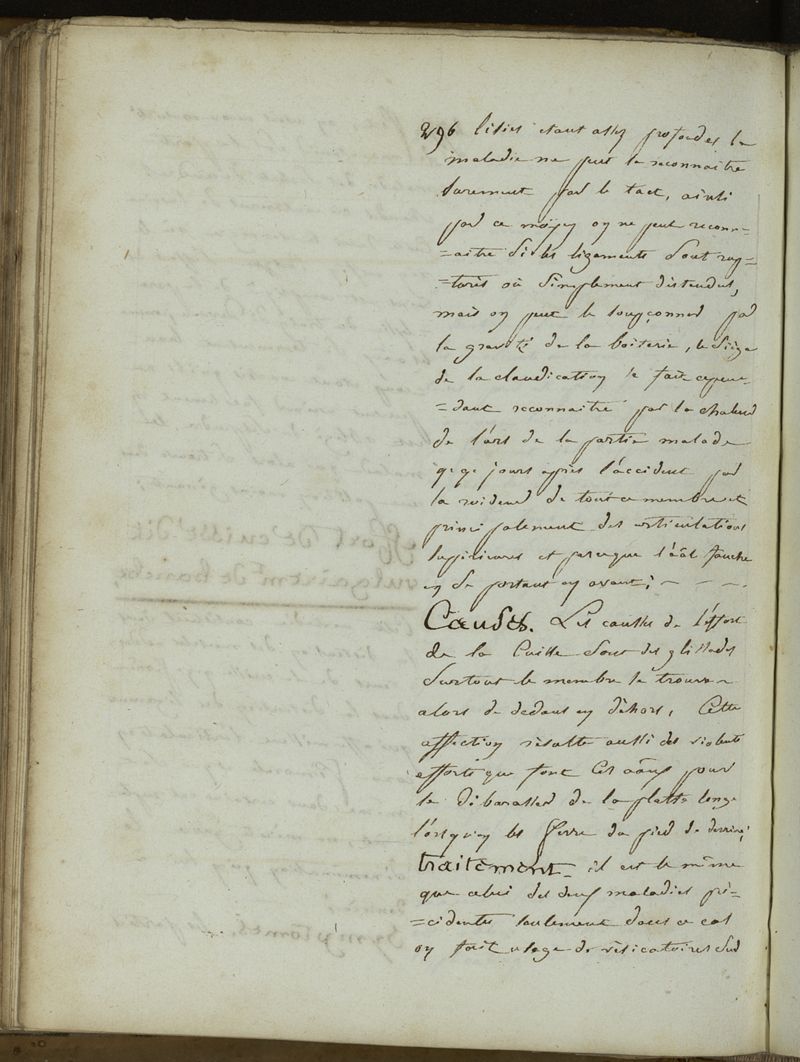 296 lésées étant assez profondes la
maladie ne peut se reconnaitre
surement par le tact, ainsi
par ce moÿen on ne peut reconn-
=aitre si les ligaments sont rup=
=turés où simplement distendus,
mais on peut le soupçonner par
la gravité de la boiterie, le siège
de la claudication se fait cepen-
=dant reconnaitre par la chaleur
de l'ars de la partie malade
q.q. jours après l'accident par
la roideur de tout ce membre et
principalement des articulations
superieures et parceque l'aãl fauche
en se portant en avant; ~ ~ ~
Causes. Les causes de l'effort
de la Cuisse sont des glissades
surtout le membre se trouve
alors de dedans en déhors, Cette
affection résulte aussi des violents
efforts que font les aãux pour
se débarasser de la platte longe
lorsqu'on les ferre du pied de derrière;
traitement _ il est le même
que celui des deux maladies pré-
=cédentes seulement dans ce cas
on fait usage de vésicatoires sur